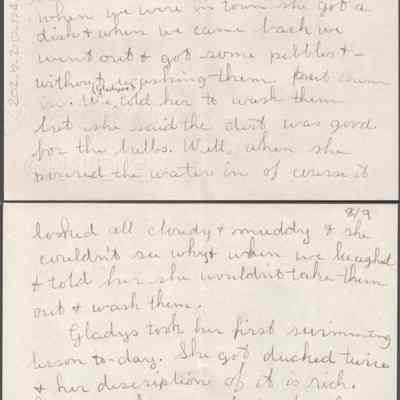 when we were in town she got a
dish & when we came back we
went out & got some pebbles & -
without washing them put them
in. We (Gladyse) told her to wash them
but she said the dirt was good
for the bulbs. Well, when she
poured the water in of course it
8/9
looked all cloudy & muddy & she
couldn't see why & when we laughed
& told her she wouldn't take them
out & wash them.
Gladys took her first swimming
lesson to-day. She got ducked twice
& her description of it is rich.